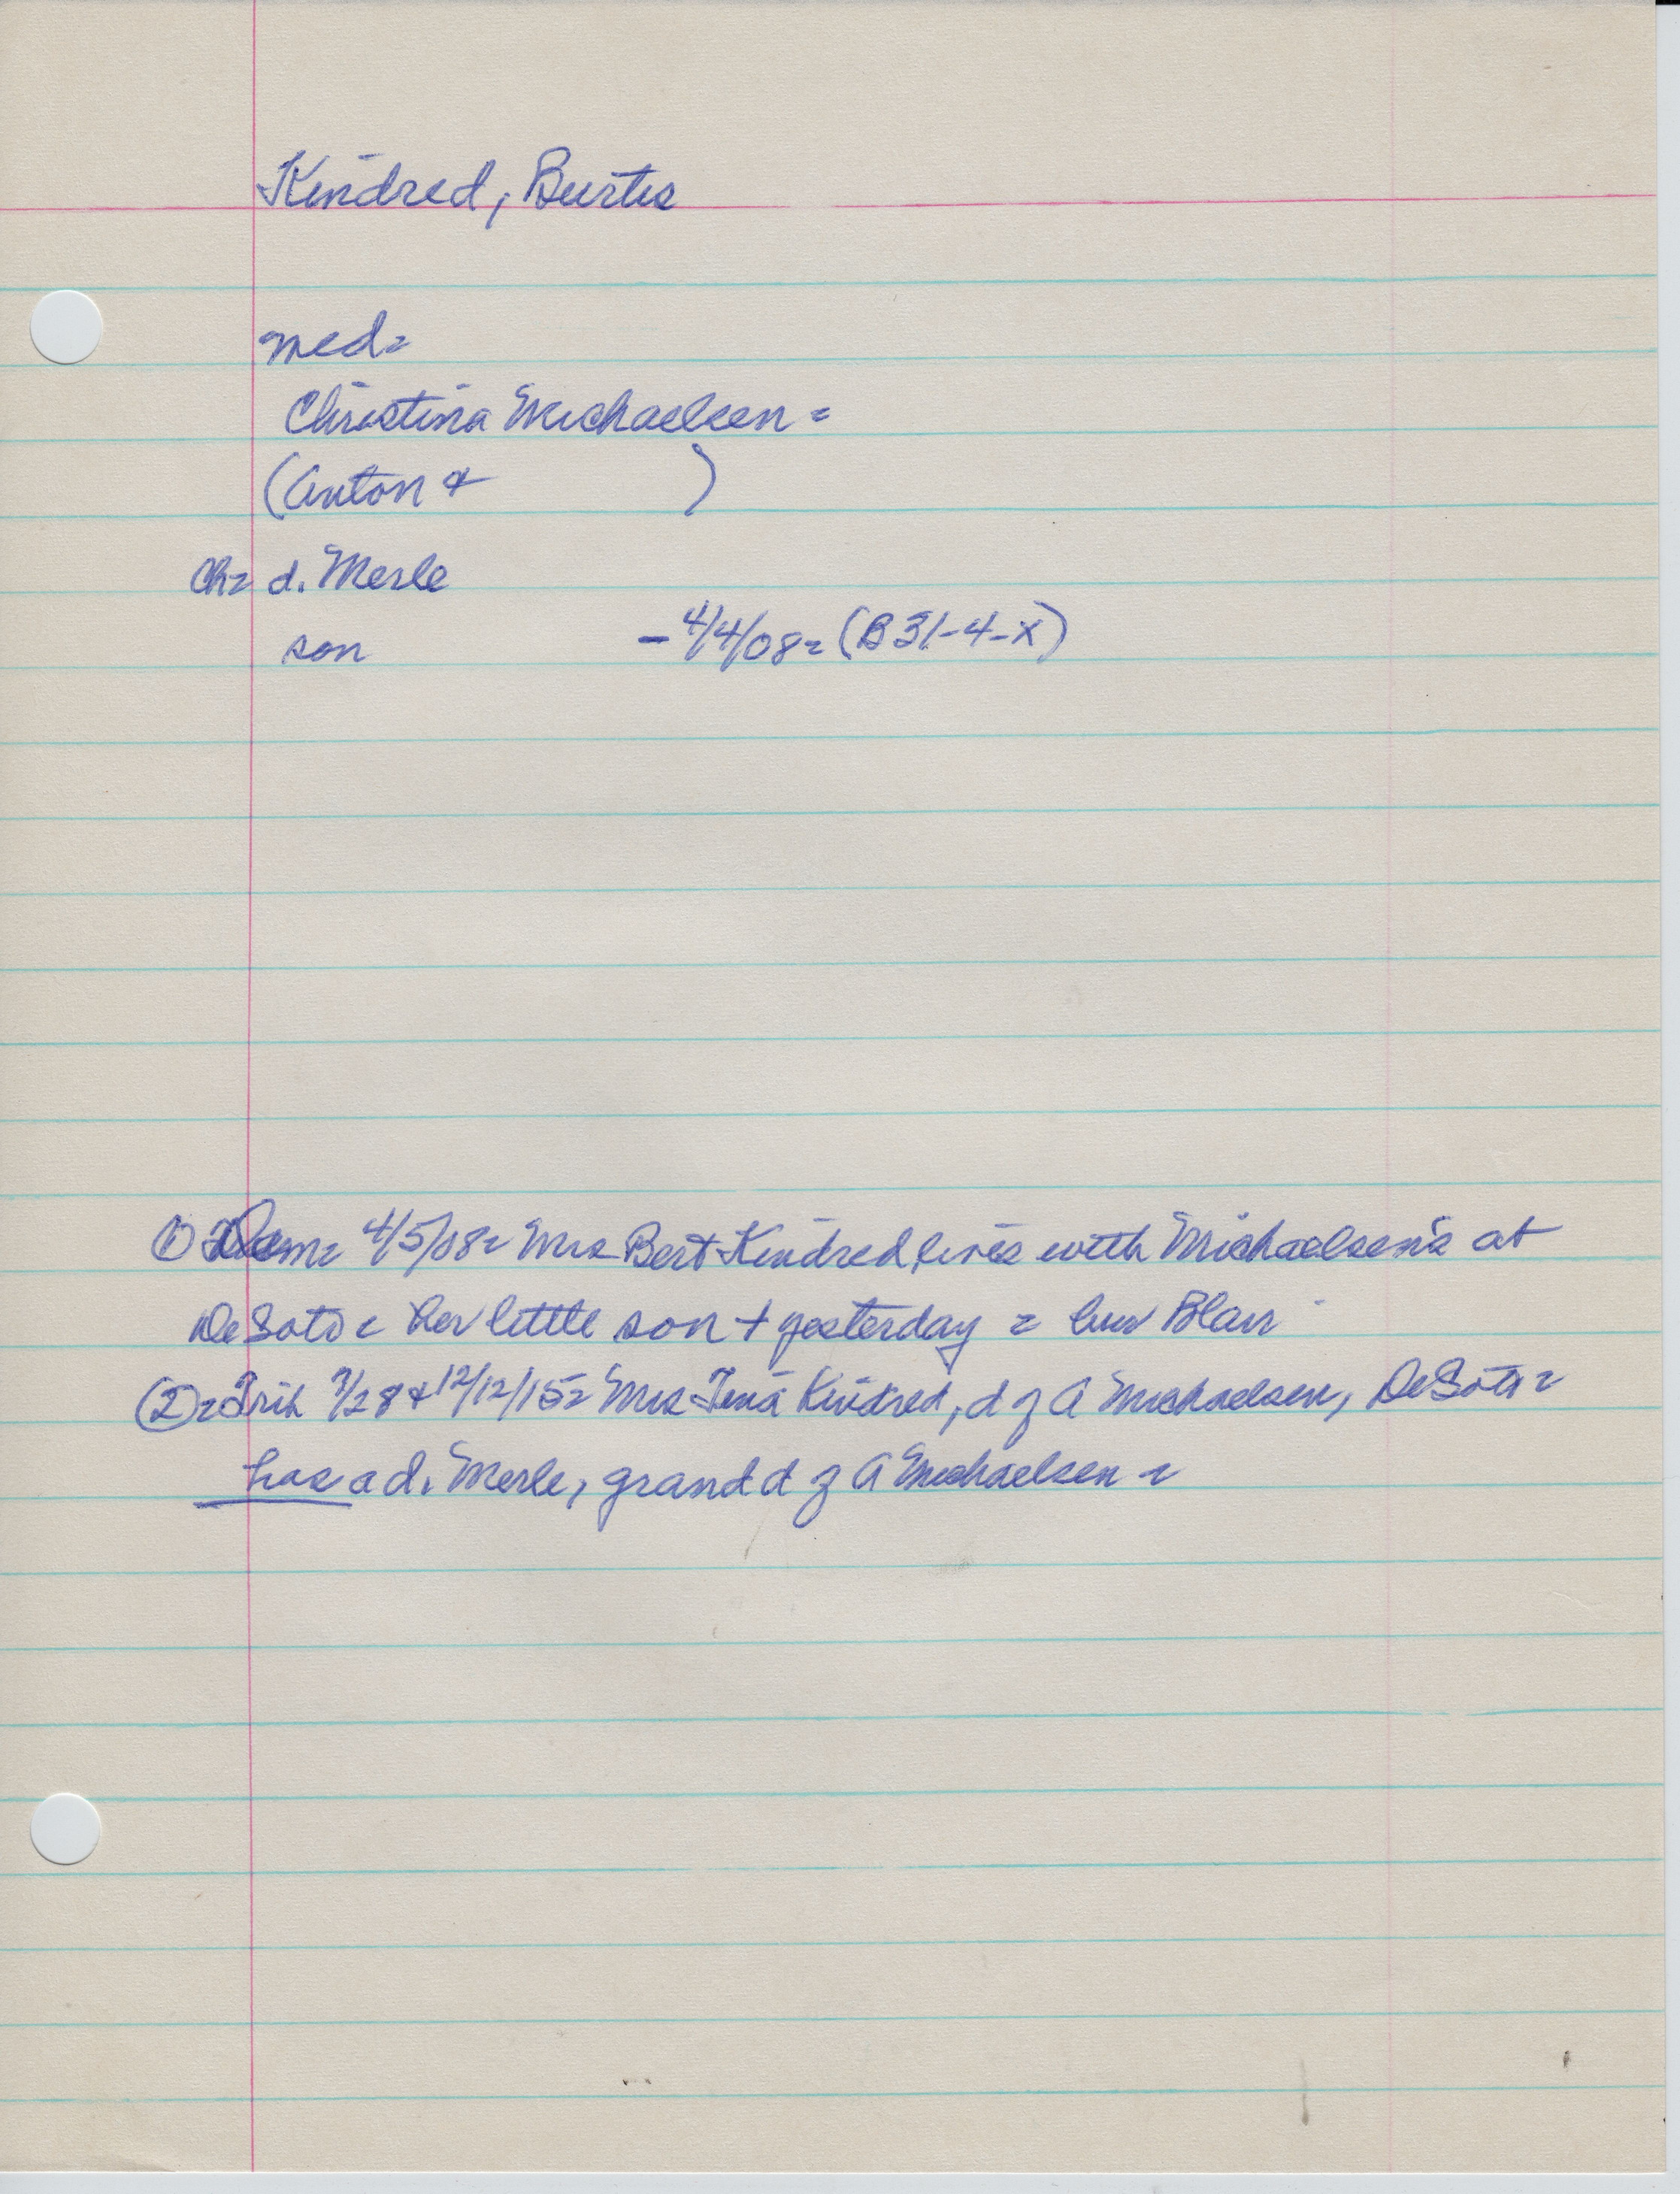 Kindred, Burtis
med=
Christina Michaelsen =
(Anton &          )
Ch= d. Merle
son          - 4/4/08 = (B 31-4-X)
① Dem= 4/5/08= Mrs Bert Kindred lives with Michaelsen's at
DeSoto = her little son + yesterday = bur Blair
② = Trib 7/28 & 12/12/15= Mrs Tena Kindred, d of A Michaelsen, DeSoto =
has a d. Merle, grand d of A Michaelsen =